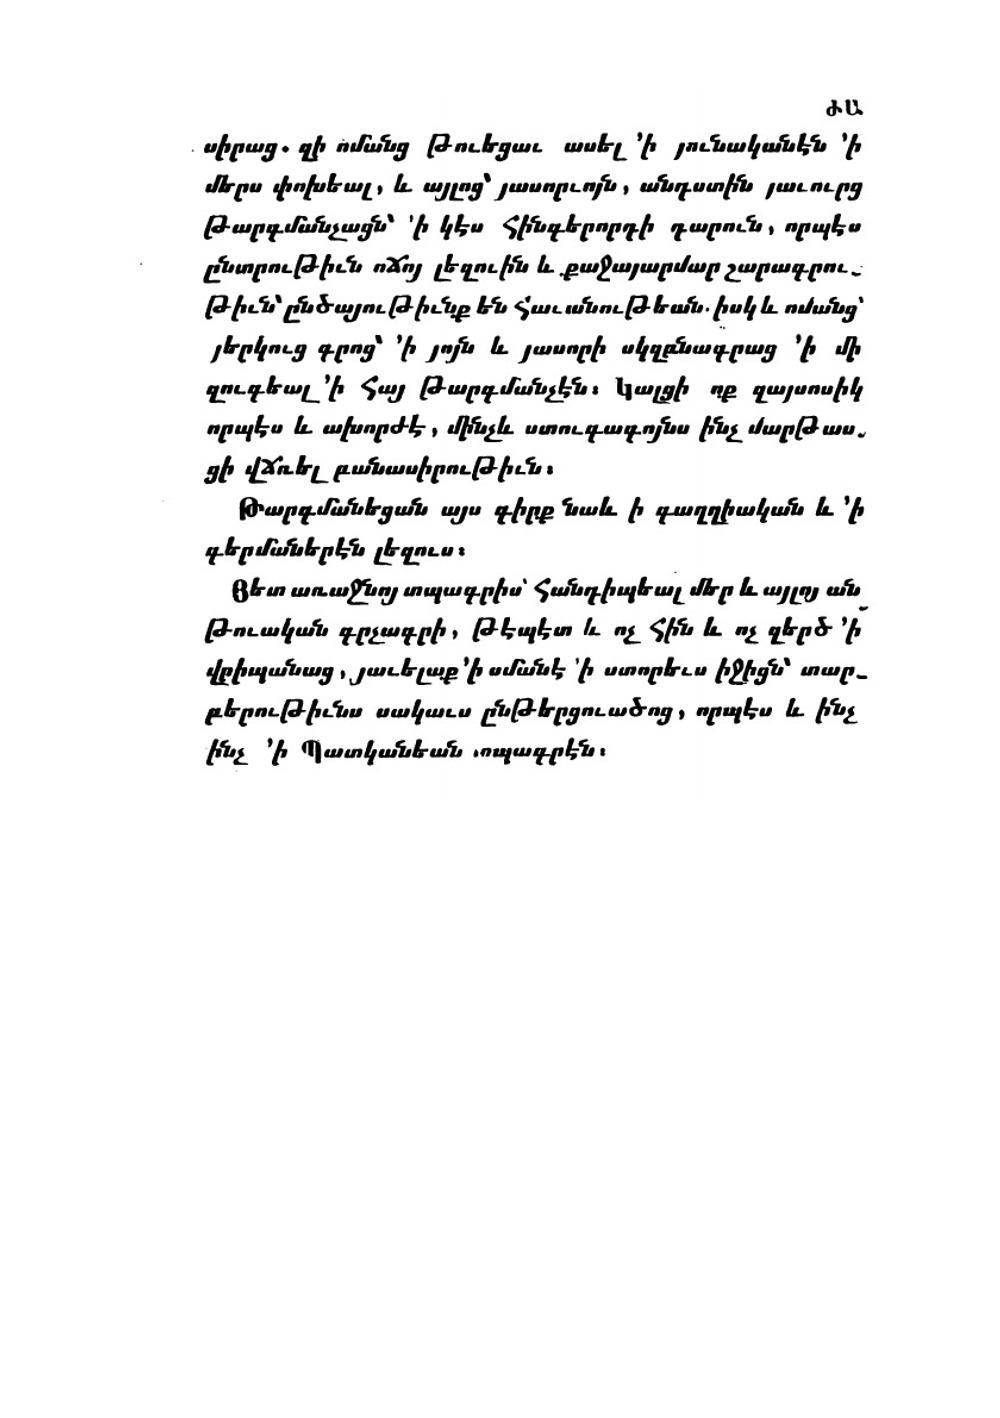 ԺԱ
սիրաց. զի ոմանց թուեցաւ ասել ՚ի յունականէն ՚ի
մերս փոխեալ, և այլոց՝ յասորւոյն, անդստին յաւուրց
թարգմանչացն՝ ՚ի կէս հինգերորդի դարուն, որպէս
ընտրութիւն ոճոյ լեզուին և քաջայարմար շարագրու-
թիւն՝ ընծայութիւնք են հաւանութեան. իսկ և ոմանց՝
յերկուց գրոց՝ ՚ի յոյն և յասորի սկզբնագրաց ՚ի մի
զուգեալ ՚ի հայ թարգմանչէն։ Կալցի ոք զայսոսիկ
որպէս և ախորժէ, մինչև ստուգագոյնս ինչ մարթաս-
ցի վճռել բանասիրութիւն։
Թարգմանեցան այս գիրք նաև ի գաղղիական և ՚ի
գերմաներէն լեզուս։
Յետ առաջնոյ տպագրիս՝ հանդիպեալ մեր և այլոյ ան
թուական գրչագրի, թէպէտ և ոչ հին և ոչ զերծ ՚ի
վրիպանաց, յաւելաք ՚ի սմանէ ՚ի ստորեւս իջիցն՝ տար-
բերութիւնս սակաւս ընթերցուածոց, որպէս և ինչ
ինչ ՚ի Պատկանեան տպագրէն։